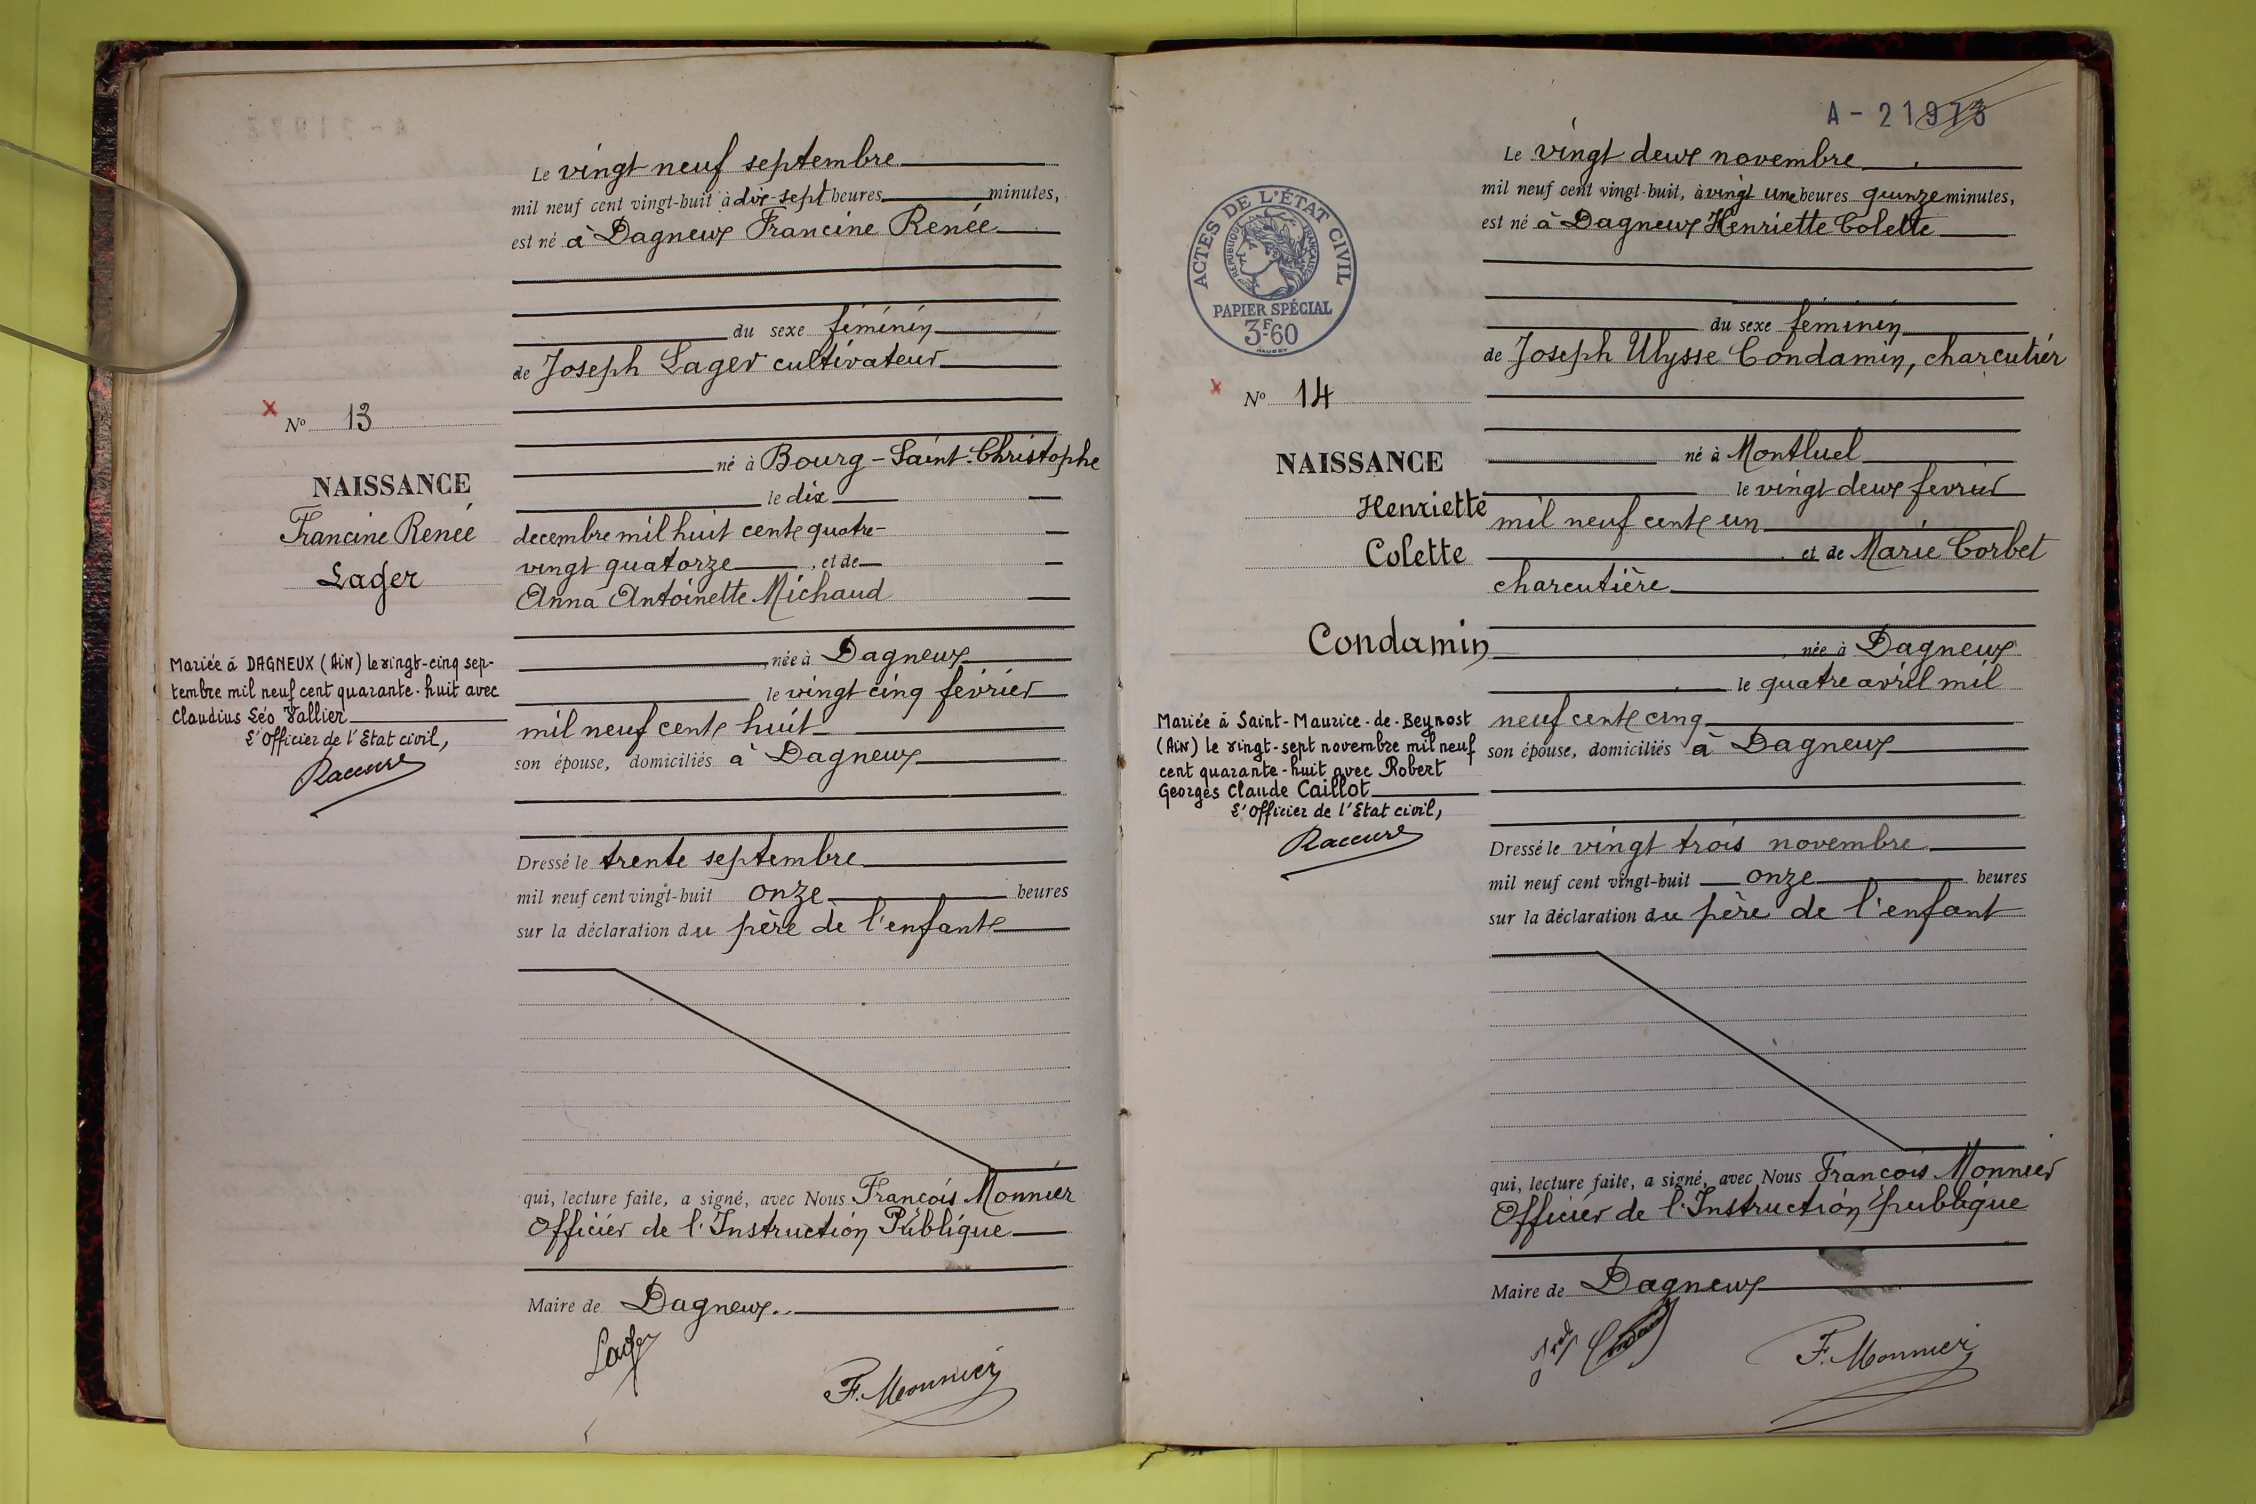 Le vingt neuf septembre
mil neuf cent vingt-huit à dix-sept heures minutes,
est né à Dagneux Francine Renée
du sexe féminin
de Joseph Lager cultivateur
né à Bourg-Saint-Christophe
le dix
decembre mil huit cent quatre-
vingt quatorze, et de
Anna Antoinette Michaud
née à Dagneux
le vingt cinq février
mil neuf cent huit
son épouse, domiciliés à Dagneux
Dressé le trente septembre
mil neuf cent vingt-huit onze heures
sur la déclaration du père de l'enfant
qui, lecture faite, a signé, avec Nous François Monnier
Officier de l'Instruction Publique
Maire de Dagneux
Lager
F. Monnier
N° 13
NAISSANCE
Francine Renée
Lager
Mariée à DAGNEUX (Ain) le vingt-cinq sep-
tembre mil neuf cent quarante-huit avec
Claudius Léo Vallier
L'Officier de l'Etat civil,
A-21973
Le vingt deux novembre
mil neuf cent vingt-huit, à vingt une heures quinze minutes,
est né à Dagneux Henriette Colette
du sexe féminin
de Joseph Ulysse Condamin, charcutier
né à Montluel
le vingt deux fevrier
mil neuf cent un
et de Marie Corbet
charcutière
née à Dagneux
le quatre avril mil
neuf cent cinq
son épouse, domiciliés à Dagneux
Dressé le vingt trois novembre
mil neuf cent vingt-huit onze heures
sur la déclaration du père de l'enfant
qui, lecture faite, a signé, avec Nous François Monnier
Officier de l'Instruction publique
Maire de Dagneux
F. Monnier
ACTES DE L'ÉTAT CIVIL
RÉPUBLIQUE FRANÇAISE
PAPIER SPÉCIAL
3F60
N° 14
NAISSANCE
Henriette
Colette
Condamin
Mariée à Saint-Maurice-de-Beynost
(Ain) le vingt-sept novembre mil neuf
cent quarante-huit avec Robert
Georges Claude Caillot
L'Officier de l'Etat civil,